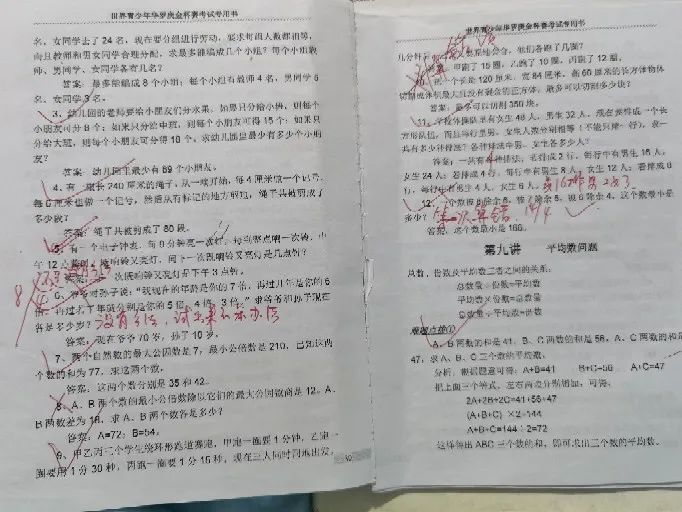 世界青少年华罗庚金杯赛考试专用书
名，女同学去了 24 名，现在要分组进行劳动，要求每组人数都相等，
而且教师和男女同学合理分配，求最多能编成几个小组？每个小组教
师，男同学、女同学各有几名？
答案：最多能编成 8 个小组；每个小组有教师 4 名，男同学 5
名，女同学 3 名。
3、幼儿园的老师要给小朋友们分水果，如果只分给小班，则每个
小朋友可分 8 个；如果只分给中班，则每个小朋友可得 15 个；如果只
分给大班，则每个小朋友可分得 10 个，求幼儿园里最少有多少个小朋
友？
答案：幼儿园里最少有 69 个小朋友。
4、有一根长 240 厘米的绳子，从一端开始，每 4 厘米做一个记号，
每 6 厘米也做一个记号，然后从有标记的地方剪断，绳子共被剪成了
多少段？
答案：绳子共被剪成了 80 段。
5、有一个电子钟表，每 9 分钟亮一次灯，每到整点响一次铃，中
午 12 点整时，既响铃又亮灯，问下一次既响铃又亮灯是几点钟？
答案：下一次既响铃又亮灯是下午 3 点钟。
6、爷爷对孙子说："我现在的年龄是你的 7 倍，再过几年是你的 6
倍，再过若干年就分别是你的 5 倍、4 倍、3 倍。"求爷爷和孙子现在
各是多少岁？
答案：现在爷爷 70 岁，孙子 10 岁。
7、两个自然数的最大公因数是 7，最小公倍数是 210，已知这两
个数的和为 77，求这两个数。
答案：这两个数分别是 35 和 42。
8、A、B 两个数的最小公倍数除以它们的最大公因数商是 12。A、
B 两数差为 18，求 A、B 两个数各是多少？
答案：A=72；B=54。
9、甲乙丙三个学生绕环形跑道赛跑，甲跑一圈要 1 分钟，乙跑一
圈要用 1 分 30 秒，丙跑一圈要 1 分 15 秒，现在三人同时同地出发，
世界青少年华罗庚金杯赛考试专用书
答案：甲跑了 15 圈，乙跑了 10 圈，丙跑了 12 圈。
一个长是 120 厘米，宽 84 厘米，高 60 厘米的长方体物体
切割成体积最大且没有剩余的正方体，最多可以切割多少块？
答案：最多可以切割 350 块。
11、学校体操队里有女生 48 人，男生 32 人，现在要排成一个长
方形队伍，而且每行里男、女生人数分别相等
共有多少种排法？各种排法中男、女生各多少人？
女生 24 人；若排成 4 行，每行中有男生 8 人，女生 12 人；若排成 8
行，每行中有男生 4 人，女生 6 人。
多少？
第一次算错，174
答案：这个数最小是 166。
第九讲 平均数问题
总数，份数及平均数三者之间的关系：
总数量÷份数=平均数
平均数×份数=总数量
总数量÷平均数=份数
A、B 两数的和是 41，B、C 两数的和是 56，A、C 两数的和是
47，求 A、B、C 三个数的平均数。
分析：根据题意可得：A+B=41 B+C=56 A+C=47
把上面三个等式，左右两边分别相加，可得：
2A+2B+2C=41+56+47
(A+B+C) ×2=144
A+B+C=144÷2=72
这样得出 ABC 三个数的和，即可求出三个数的平均数。